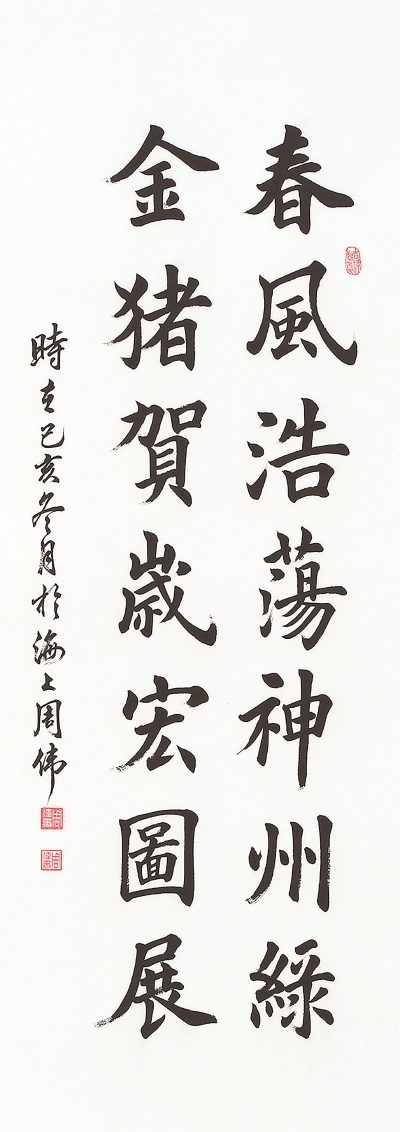 春風浩蕩神州綠
金猪賀歲宏圖展
時在己亥冬月於海上周伟